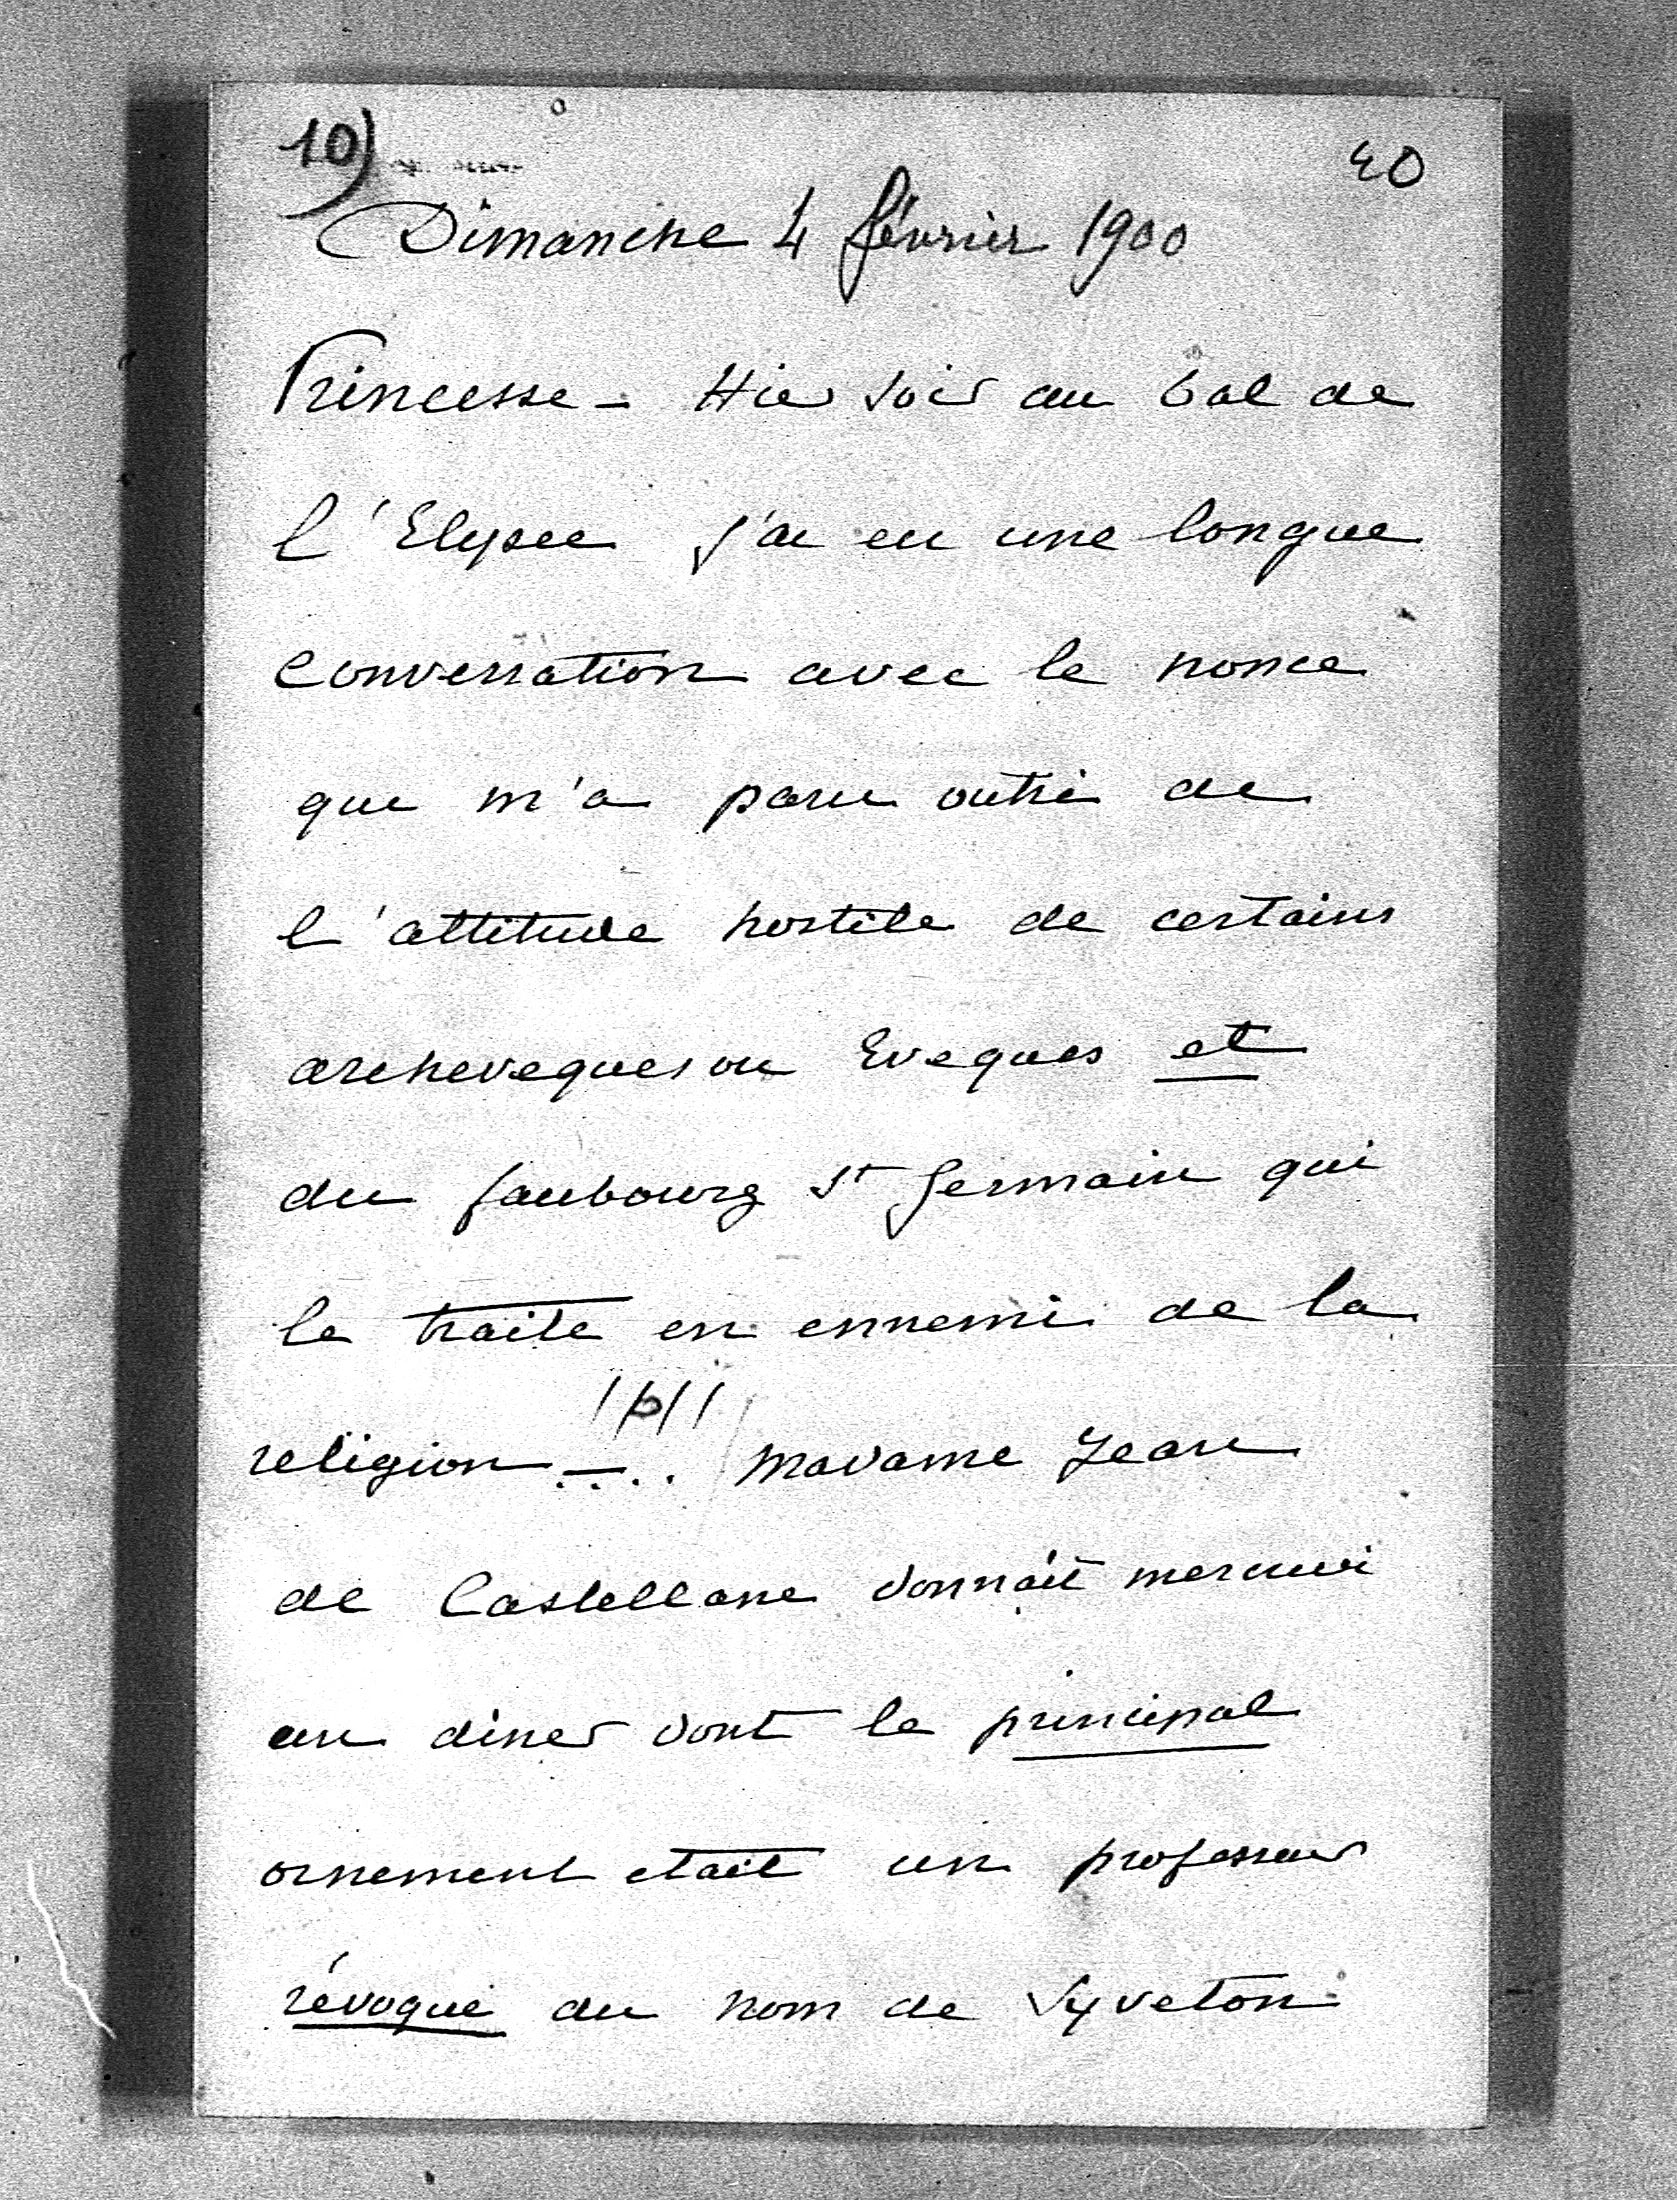 10)
40
Dimanche 4 février 1900
Princesse - Hier soir au bal de
l'Elysee j'ai eu une longue
conversation avec le nonce
que m'a paru outré de
l'attitude hostile de certains
archeveques ou Eveques et
du faubourg St Germain qui
le traite en ennemi de la
religion - .... Madame Jean
de Castellane donnait mercredi
un diner dont le principal
ornement etait un professeur
révoqué du nom de Syveton